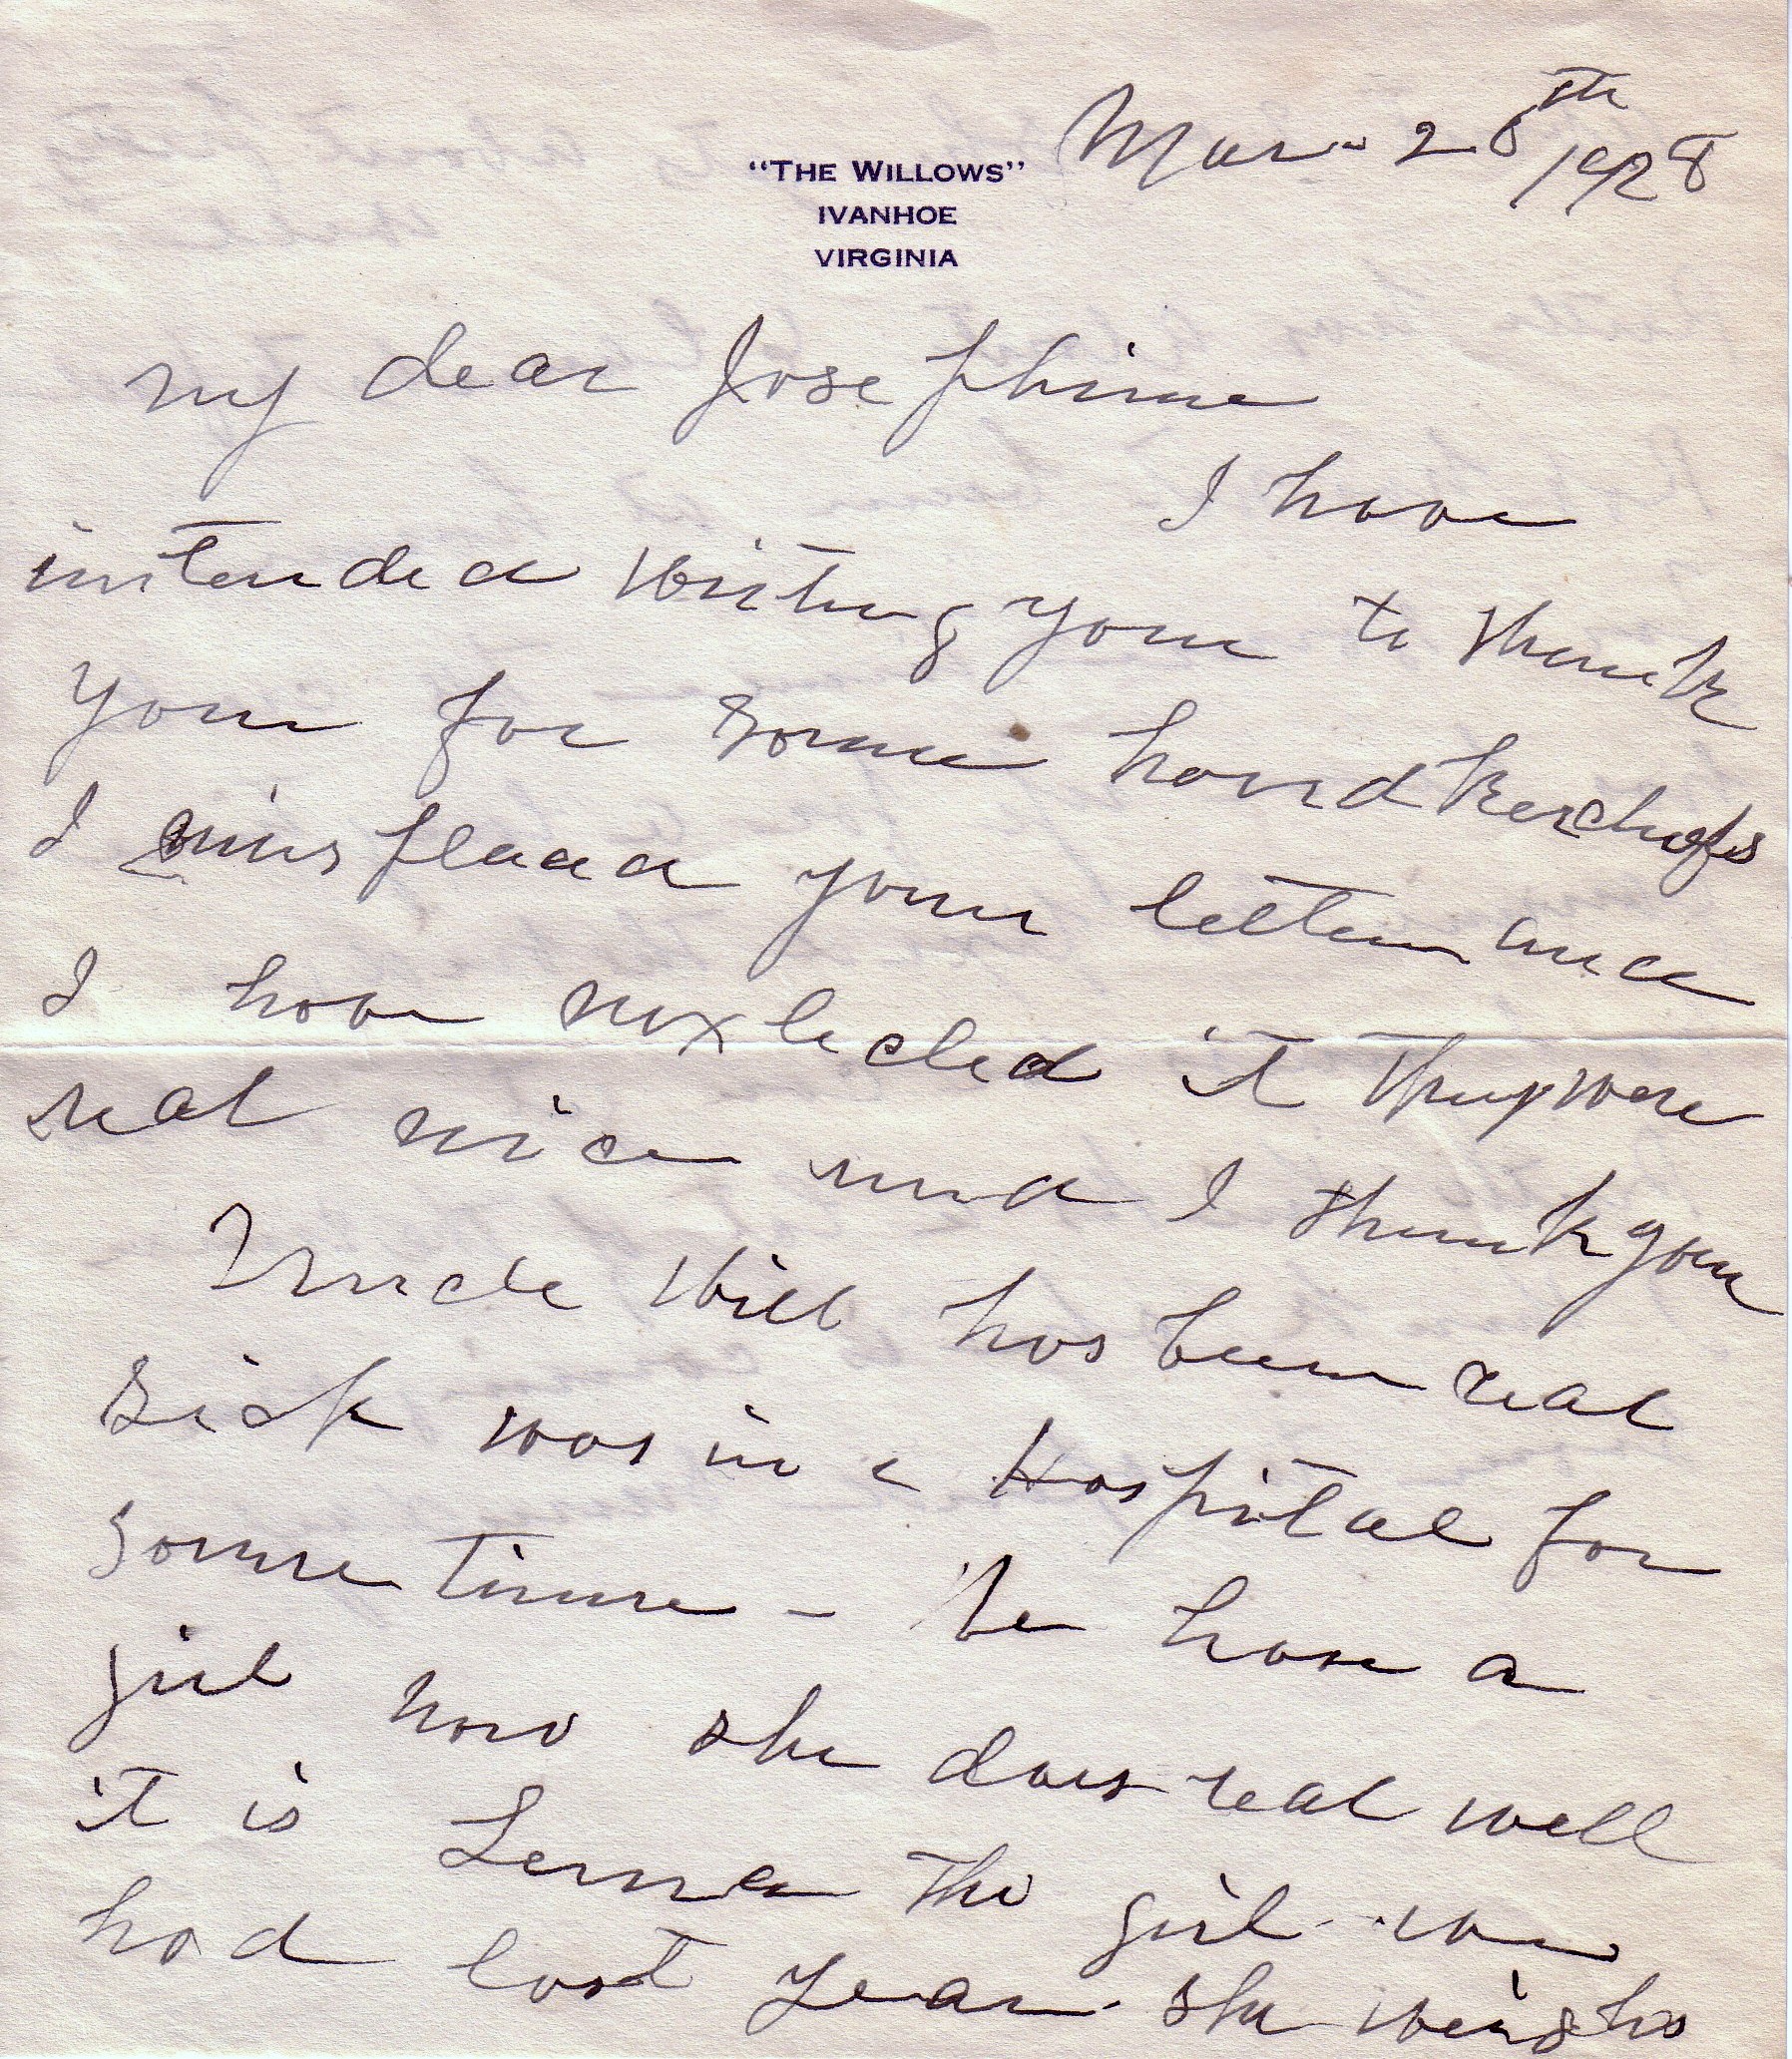 "THE WILLOWS"
IVANHOE
VIRGINIA
Mar - 28th
1928
My dear Josephine
I have
intended writing you to thank
you for some handkerchefs
I misplaed your letter and
I have neglected it they were
real nice and I thank you
Uncle Will has been real
sick was in a Hospital for
some time - We have a
girl now she does real well
it is Lerna the girl we
had last year she weighs